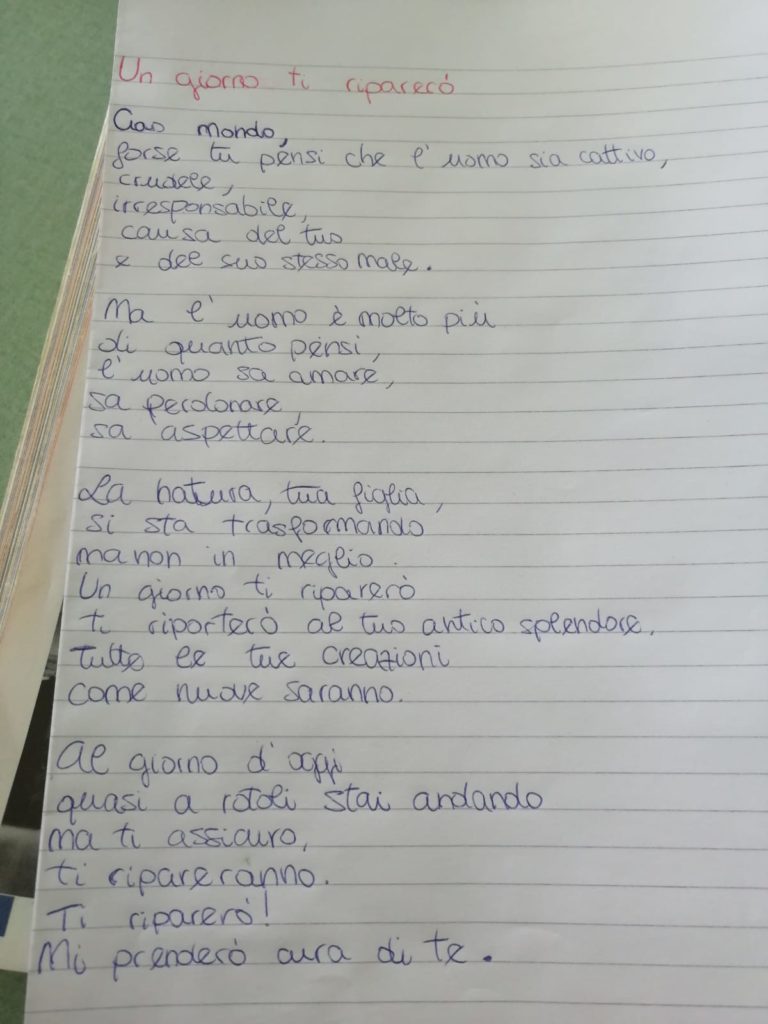 Un giorno ti riparerò
Ciao mondo,
forse tu pensi che l'uomo sia cattivo,
crudele,
irresponsabile,
causa del tuo
e del suo stesso male.
Ma l'uomo è molto più
di quanto pensi,
l'uomo sa amare,
sa perdonare,
sa aspettare.
La natura, tua figlia,
si sta trasformando
ma non in meglio.
Un giorno ti riparerò
ti riporterò al tuo antico splendore,
tutte le tue creazioni
come nuove saranno.
Al giorno d'oggi
quasi a rotoli stai andando
ma ti assicuro,
ti ripareranno.
Ti riparerò!
Mi prenderò cura di te.